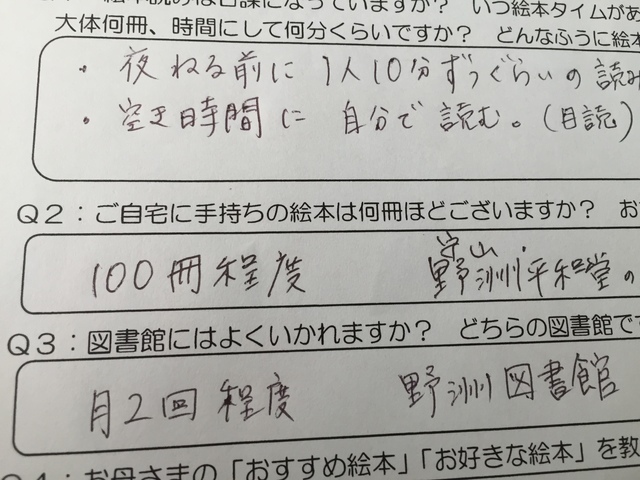 絵本読みは日課になっていますか？ いつ絵本タイムがあ
大体何冊、時間にして何分くらいですか？ どんなふうに絵本
・夜ねる前に 1人10分ずつぐらいの読み
・空き時間に 自分で読む。（目読）
Q2：ご自宅に手持ちの絵本は何冊ほどございますか？ お
守山、
100冊程度 野洲・平和堂の
Q3：図書館にはよくいかれますか？ どちらの図書館です
月2回程度 野洲図書館
Q4：お母さまの「おすすめ絵本」「お好きな絵本」を教